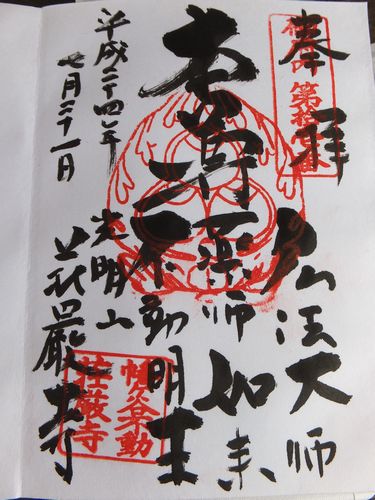 奉拝
弘法大師
本尊
薬師如来
不動明王
光明山
荘厳寺
平成二十四年
七月二十一日
第拾壹番
幡谷不動
荘厳寺